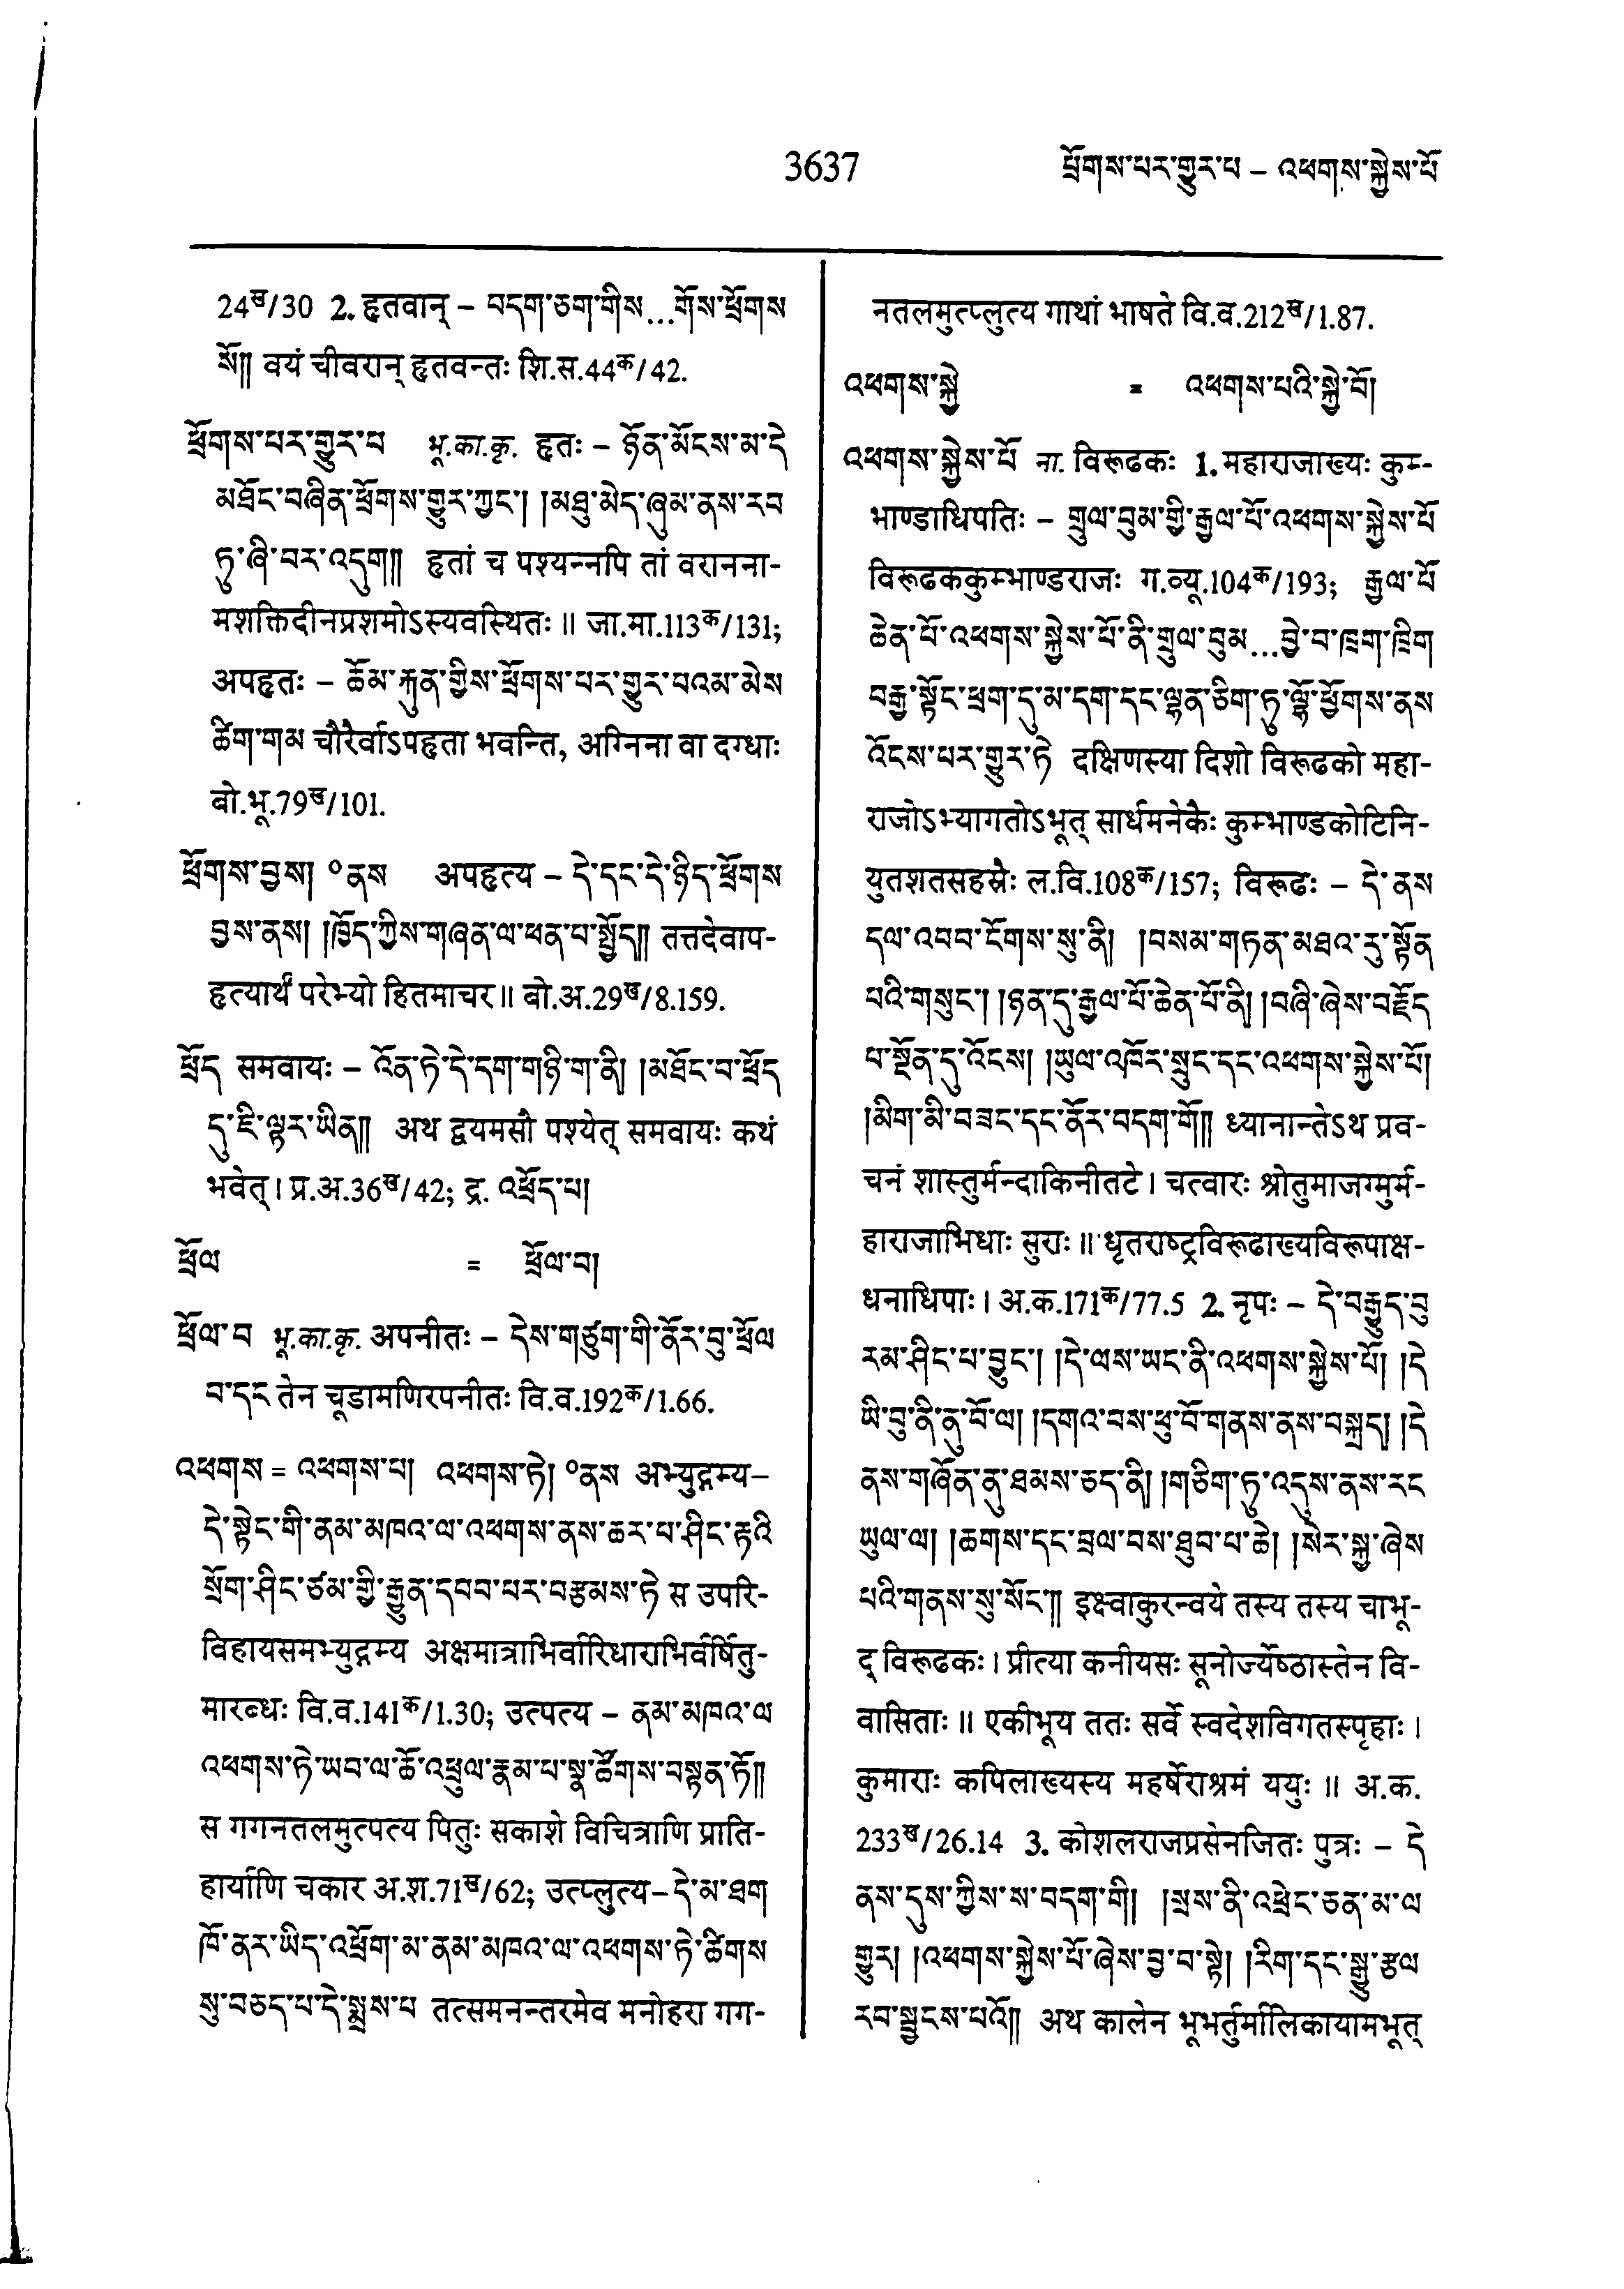 3637
ཕྲོགས་པར་གྱུར་པ – འཕགས་སྐྱེས་པོ
24ख/30 2. हृतवान् – བདག་ཅག་གིས...གོས་ཕྲོགས
སོ༎ वयं चीवरान् हृतवन्तः शि.स.44क/42.
ཕྲོགས་པར་གྱུར་པ भू.का.कृ. हृतः – ཉོན་མོངས་མ་དེ
མཐོང་བཞིན་ཕྲོགས་གྱུར་ཀྱང་། །མཐུ་མེད་ཞུམ་ནས་རབ
ཏུ་ཞི་བར་འདུག༎ हृतां च पश्यन्नपि तां वरानना-
मशक्तिदीनप्रशमोऽस्यवस्थितः॥ जा.मा.113क/131;
अपहृतः – ཆོམ་རྐུན་གྱིས་ཕྲོགས་པར་གྱུར་པའམ་མེས
ཚིག་གམ चौरैर्वाऽपहृता भवन्ति, अग्निना वा दग्धाः
बो.भू.79ख/101.
ཕྲོགས་བྱས། °ནས अपहृत्य – དེ་དང་དེ་ཉིད་ཕྲོགས
བྱས་ནས། །ཁྱོད་ཀྱིས་གཞན་ལ་ཕན་པ་སྤྱོད༎ तत्तदेवाप-
हृत्यार्थं परेभ्यो हितमाचर॥ बो.अ.29ख/8.159.
ཕྲོད समवायः – འོན་ཏེ་དེ་དག་གཉི་ག་ནི། །མཐོང་བ་ཕྲོད
དུ་ཇི་ལྟར་ཡིན༎ अथ द्वयमसौ पश्येत् समवायः कथं
भवेत्। प्र.अ.36ख/42; द्र. འཕྲོད་པ།
ཕྲོལ = ཕྲོལ་བ།
ཕྲོལ་བ भू.का.कृ. अपनीतः – དེས་གཙུག་གི་ནོར་བུ་ཕྲོལ
བ་དང तेन चूडामणिरपनीतः वि.व.192क/1.66.
འཕགས = འཕགས་པ། འཕགས་ཏེ། °ནས अभ्युद्गम्य–
དེ་སྟེང་གི་ནམ་མཁའ་ལ་འཕགས་ནས་ཆར་པ་ཤིང་རྟའི
སྲོག་ཤིང་ཙམ་གྱི་རྒྱུན་དབབ་པར་བརྩམས་ཏེ स उपरि-
विहायसमभ्युद्गम्य अक्षमात्राभिर्वारिधाराभिर्वर्षितु-
मारब्धः वि.व.141क/1.30; उत्पत्य – ནམ་མཁའ་ལ
འཕགས་ཏེ་ཡབ་ལ་ཆོ་འཕྲུལ་རྣམ་པ་སྣ་ཚོགས་བསྟན་ཏོ༎
स गगनतलमुत्पत्य पितुः सकाशे विचित्राणि प्राति-
हार्याणि चकार अ.श.71ख/62; उत्प्लुत्य–དེ་མ་ཐག
ཁོ་ནར་ཡིད་འཕྲོག་མ་ནམ་མཁའ་ལ་འཕགས་ཏེ་ཚིགས
སུ་བཅད་པ་དེ་སྨྲས་པ तत्समनन्तरमेव मनोहरा गग-
नतलमुत्प्लुत्य गाथां भाषते वि.व.212ख/1.87.
འཕགས་སྐྱེ = འཕགས་པའི་སྐྱེ་བོ།
འཕགས་སྐྱེས་པོ ना. विरूढकः 1. महाराजाख्यः कुम्-
भाण्डाधिपतिः – གྲུལ་བུམ་གྱི་རྒྱལ་པོ་འཕགས་སྐྱེས་པོ
विरूढककुम्भाण्डराजः ग.व्यू.104क/193; རྒྱལ་པོ
ཆེན་པོ་འཕགས་སྐྱེས་པོ་ནི་གྲུལ་བུམ...བྱེ་བ་ཁྲག་ཁྲིག
བརྒྱ་སྟོང་ཕྲག་དུ་མ་དག་དང་ལྷན་ཅིག་ཏུ་ལྷོ་ཕྱོགས་ནས
འོངས་པར་གྱུར་ཏེ दक्षिणस्या दिशो विरूढको महा-
राजोऽभ्यागतोऽभूत् सार्धमनेकैः कुम्भाण्डकोटिनि-
युतशतसहस्रैः ल.वि.108क/157; विरूढः – དེ་ནས
དལ་འབབ་ངོགས་སུ་ནི། །བསམ་གཏན་མཐའ་རུ་སྟོན
པའི་གསུང་། །ཉན་དུ་རྒྱལ་པོ་ཆེན་པོ་ནི། །བཞི་ཞེས་བརྗོད
པ་སྔོན་དུ་འོངས། །ཡུལ་འཁོར་སྲུང་དང་འཕགས་སྐྱེས་པོ།
།མིག་མི་བཟང་དང་ནོར་བདག་གོ༎ ध्यानान्तेऽथ प्रव-
चनं शास्तुर्मन्दाकिनीतटे। चत्वारः श्रोतुमाजग्मुर्म-
हाराजाभिधाः सुराः॥ धृतराष्ट्रविरूढाख्यविरूपाक्ष-
धनाधिपाः। अ.क.171क/77.5 2. नृपः – དེ་བརྒྱུད་བུ
རམ་ཤིང་པ་བྱུང་། །དེ་ལས་ཡང་ནི་འཕགས་སྐྱེས་པོ། །དེ
ཡི་བུ་ནི་ནུ་བོ་ལ། །དགའ་བས་ཕུ་བོ་གནས་ནས་བསྐྲད། །དེ
ནས་གཞོན་ནུ་ཐམས་ཅད་ནི། །གཅིག་ཏུ་འདུས་ནས་རང
ཡུལ་ལ། །ཆགས་དང་བྲལ་བས་ཐུབ་པ་ཆེ། །སེར་སྐྱ་ཞེས
པའི་གནས་སུ་སོང་༎ इक्ष्वाकुरन्वये तस्य तस्य चाभू-
द् विरूढकः। प्रीत्या कनीयसः सूनोर्ज्येष्ठास्तेन वि-
वासिताः॥ एकीभूय ततः सर्वे स्वदेशविगतस्पृहाः।
कुमाराः कपिलाख्यस्य महर्षेराश्रमं ययुः॥ अ.क.
233ख/26.14 3. कोशलराजप्रसेनजितः पुत्रः – དེ
ནས་དུས་ཀྱིས་ས་བདག་གི། །སྲས་ནི་འཕྲེང་ཅན་མ་ལ
གྱུར། །འཕགས་སྐྱེས་པོ་ཞེས་བྱ་བ་སྟེ། །རིག་དང་སྒྱུ་རྩལ
རབ་སྦྱངས་པའོ༎ अथ कालेन भूभर्तुर्मालिकायामभूत्